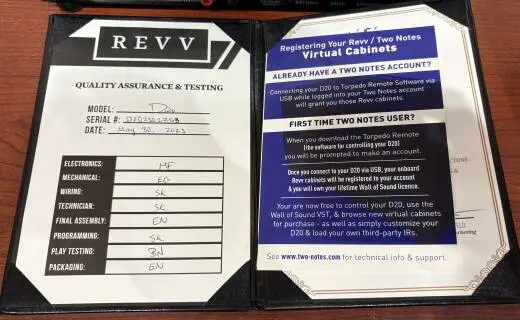 REVV
QUALITY ASSURANCE & TESTING
MODEL: D20
SERIAL #:
DATE: May 30, 2023
ELECTRONICS: MF
MECHANICAL: EG
WIRING: SK
TECHNICIAN: SK
FINAL ASSEMBLY: EN
PROGRAMMING: SK
PLAY TESTING: BN
PACKAGING: EN
Registering Your Revv / Two Notes
Virtual Cabinets
ALREADY HAVE A TWO NOTES ACCOUNT?
Connecting your D20 to Torpedo Remote Software via
USB while logged into your Two Notes account
will grant you those Revv cabinets.
FIRST TIME TWO NOTES USER?
When you download the Torpedo Remote
(the software for controlling your D20)
you will be prompted to make an account.
Once you connect to your D20 via USB, your onboard
Revv cabinets will be registered to your account
& you will own your lifetime Wall of Sound licence.
You are now free to control your D20, use the
Wall of Sound VST, & browse new virtual cabinets
for purchase - as well as simply customize your
D20 & load your own third-party IRs.
See www.two-notes.com for technical info & support.